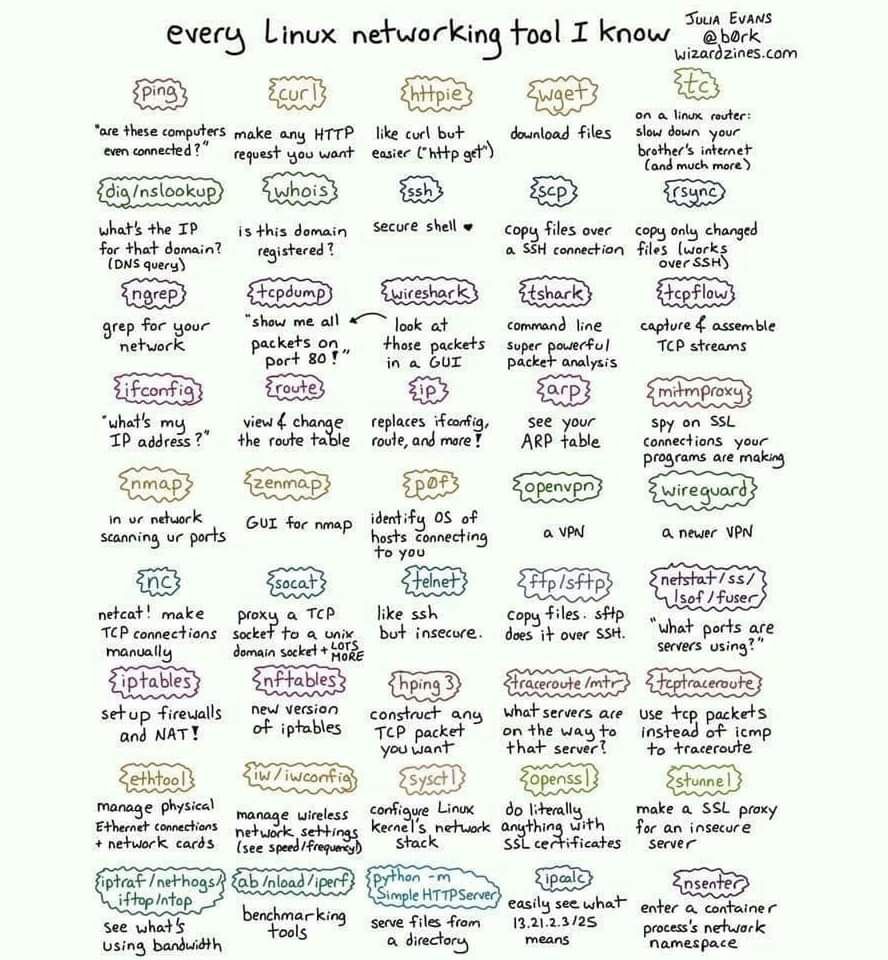 every Linux networking tool I know
JULIA EVANS
@b0rk
wizardzines.com
ping
"are these computers
even connected?"
curl
make any HTTP
request you want
httpie
like curl but
easier ("http get")
wget
download files
tc
on a linux router:
slow down your
brother's internet
(and much more)
dig/nslookup
what's the IP
for that domain?
(DNS query)
whois
is this domain
registered?
ssh
secure shell ♥
scp
copy files over
a SSH connection
rsync
copy only changed
files (works
over SSH)
ngrep
grep for your
network
tcpdump
"show me all
packets on
port 80!"
wireshark
look at
those packets
in a GUI
tshark
command line
super powerful
packet analysis
tcpflow
capture & assemble
TCP streams
ifconfig
"what's my
IP address?"
route
view & change
the route table
ip
replaces ifconfig,
route, and more!
arp
see your
ARP table
mitmproxy
spy on SSL
connections your
programs are making
nmap
in ur network
scanning ur ports
zenmap
GUI for nmap
p0f
identify OS of
hosts connecting
to you
openvpn
a VPN
wireguard
a newer VPN
nc
netcat! make
TCP connections
manually
socat
proxy a TCP
socket to a unix
domain socket + LOTS
MORE
telnet
like ssh
but insecure.
ftp/sftp
copy files. sftp
does it over SSH.
netstat/ss/
lsof/fuser
"what ports are
servers using?"
iptables
set up firewalls
and NAT!
nftables
new version
of iptables
hping3
construct any
TCP packet
you want
traceroute/mtr
what servers are
on the way to
that server?
tcptraceroute
use tcp packets
instead of icmp
to traceroute
ethtool
manage physical
Ethernet connections
+ network cards
iw/iwconfig
manage wireless
network settings
(see speed/frequency!)
sysctl
configure Linux
kernel's network
stack
openssl
do literally
anything with
SSL certificates
stunnel
make a SSL proxy
for an insecure
server
iptraf/nethogs/
iftop/ntop
see what's
using bandwidth
ab/nload/iperf
benchmarking
tools
python -m
SimpleHTTPServer
serve files from
a directory
ipcalc
easily see what
13.21.2.3/25
means
nsenter
enter a container
process's network
namespace